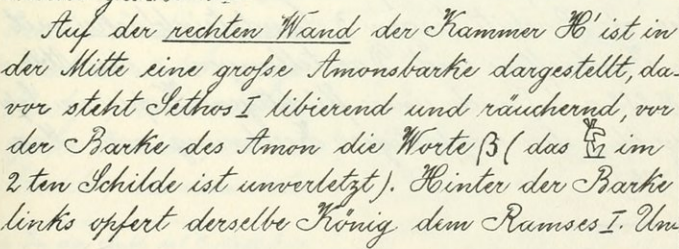 Auf der rechten Wand der Kammer H' ist in
der Mitte eine große Amonsbarke dargestellt, da-
vor steht Sethos I libierend und räuchernd, vor
der Barke des Amon die Worte β (das im
2ten Schilde ist unverletzt). Hinter der Barke
links opfert derselbe König dem Ramses I. Um